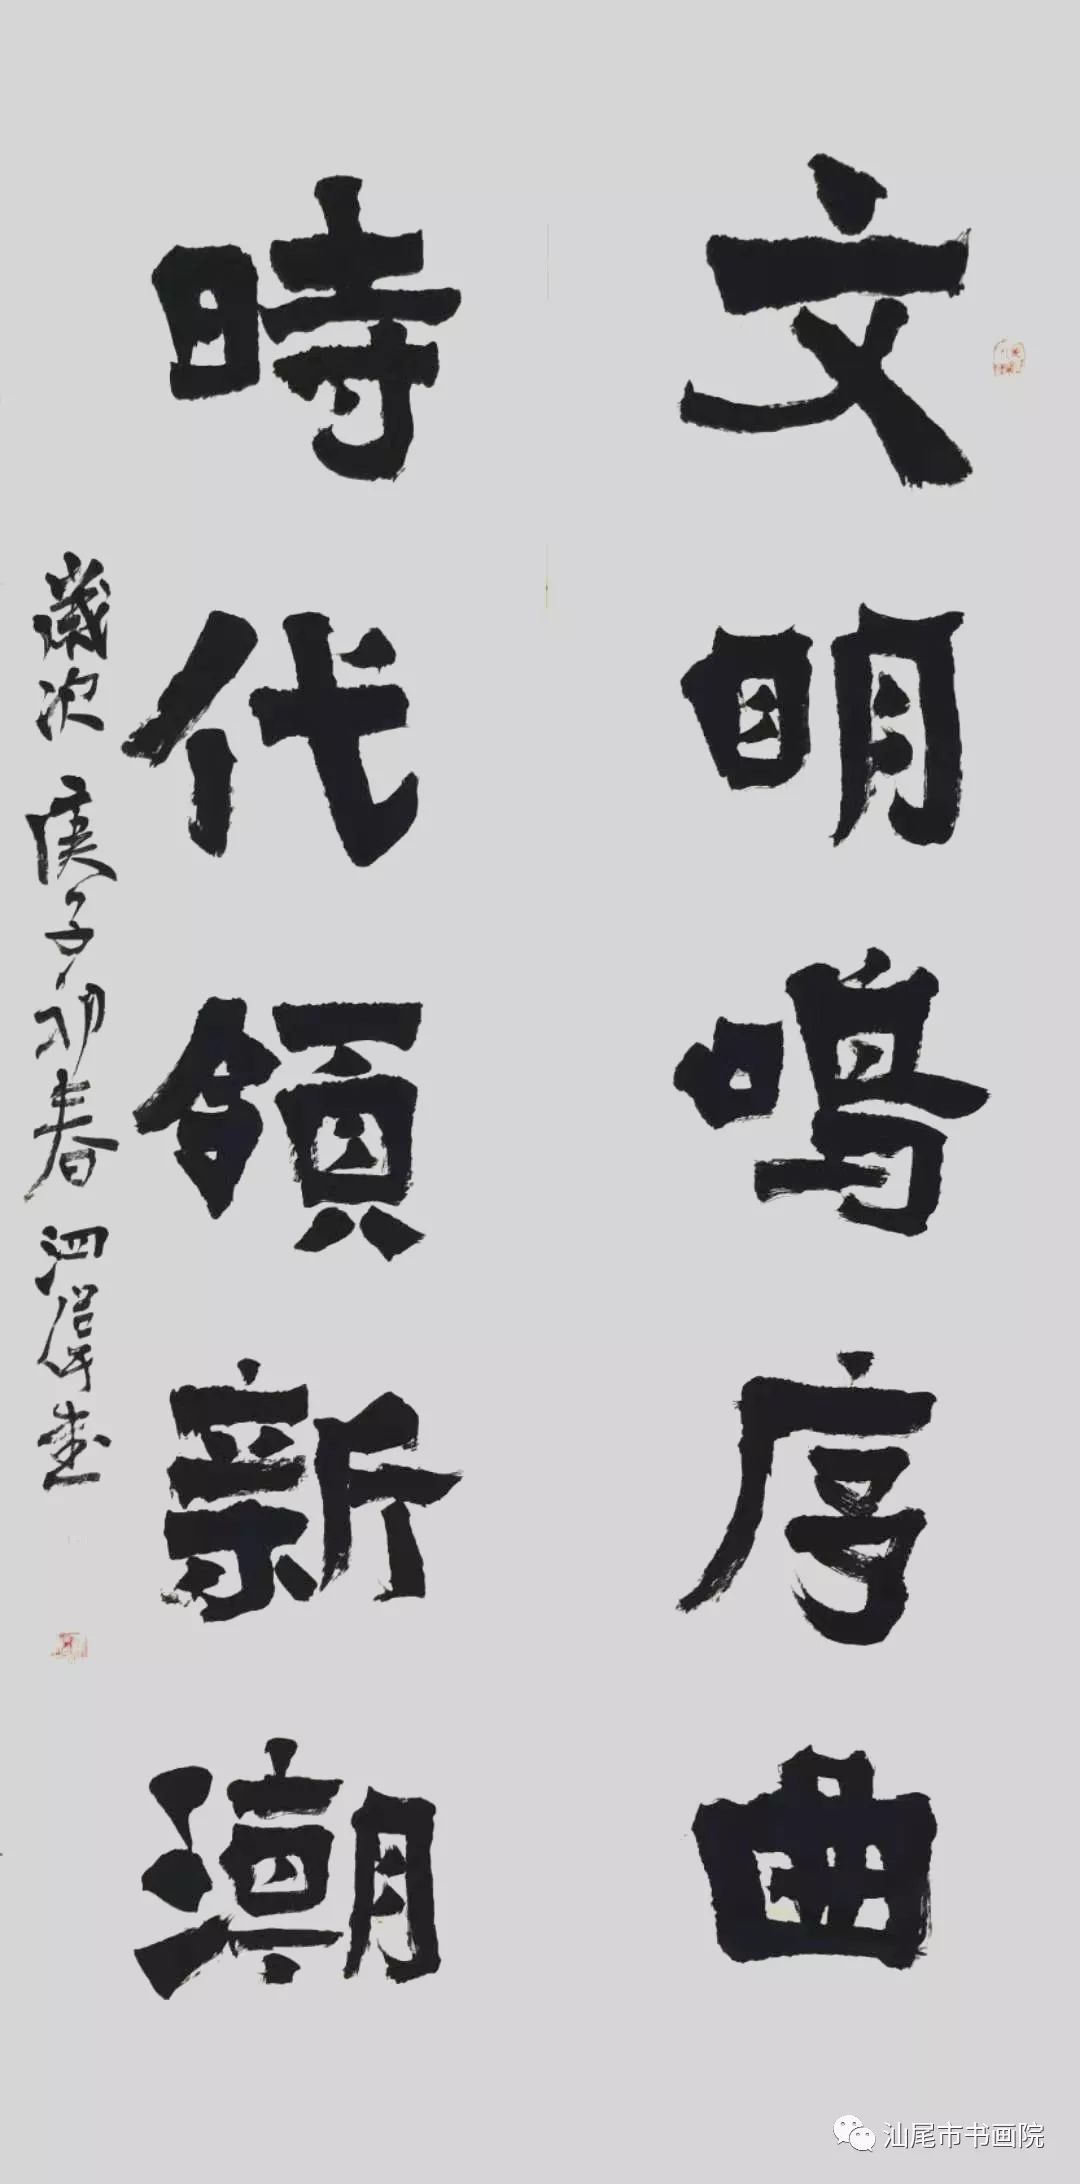 文明鳴序曲
時代領新潮
歲次庚子初春泗偉書
汕尾市书画院